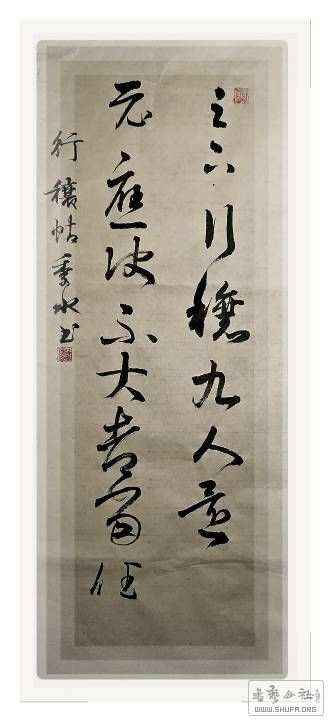 足下行穰九人還
示應決不大都當任
行穰帖 季水书
书艺公社
WWW.SHUFA.ORG